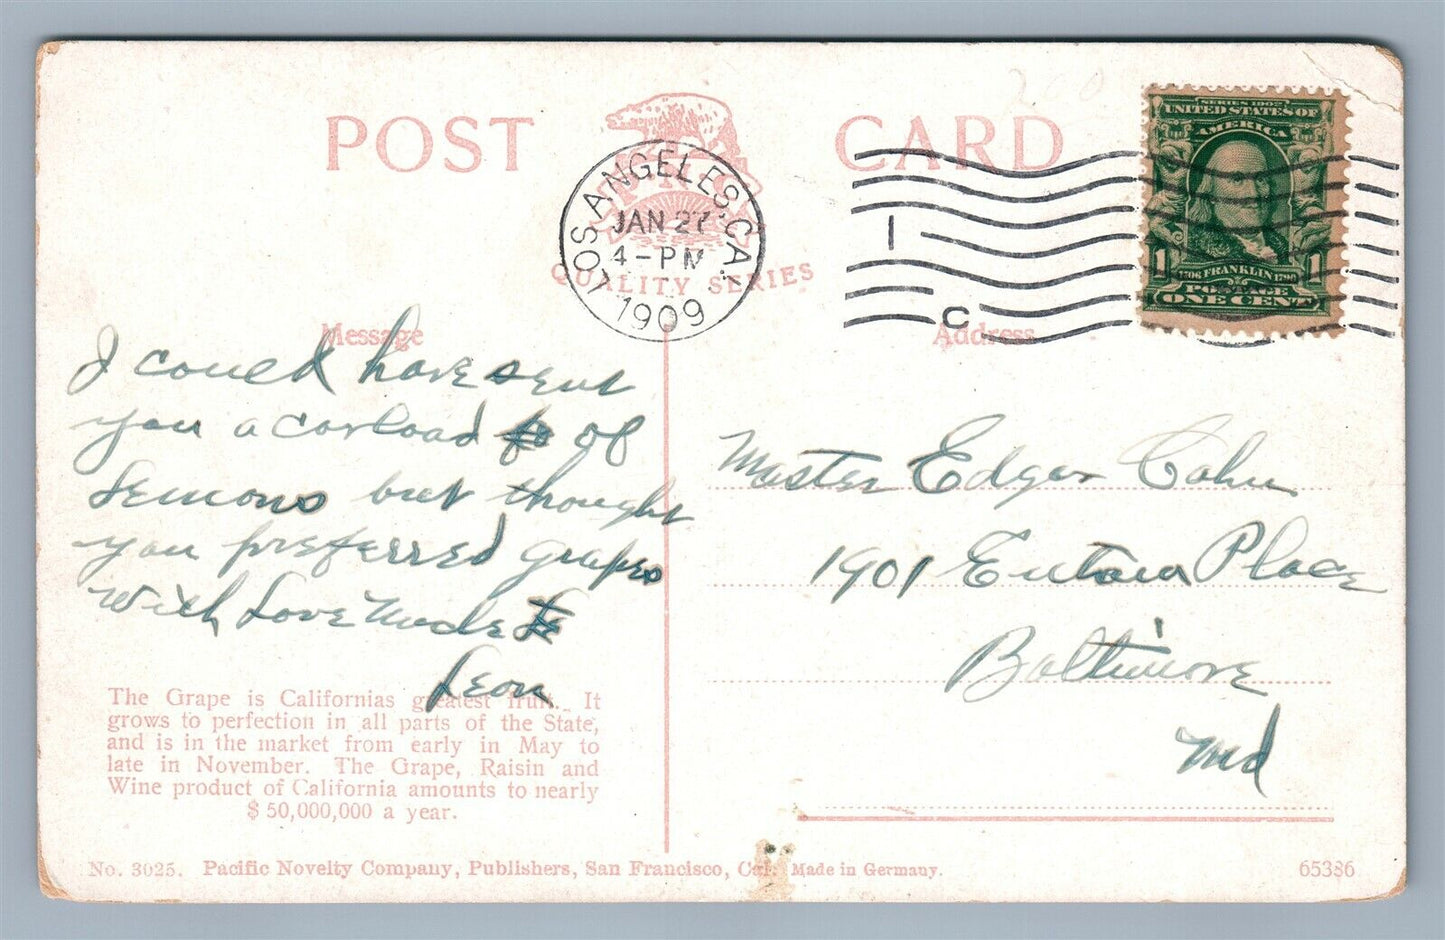 POST CARD
P N C
QUALITY SERIES
LOS ANGELES, CA.
JAN 27
4-PM
1909
1
C
SERIES 1902
UNITED STATES OF
AMERICA
1 1706 FRANKLIN 1790 1
POSTAGE
ONE CENT
Message
Address
I could have sent
you a carload of
Lemons but thought
you preferred grapes
With Love Uncle
Leon
Master Edgar Cahn
1901 Eutaw Place
Baltimore
Md
The Grape is Californias greatest fruit. It
grows to perfection in all parts of the State,
and is in the market from early in May to
late in November. The Grape, Raisin and
Wine product of California amounts to nearly
$ 50,000,000 a year.
No. 3025. Pacific Novelty Company, Publishers, San Francisco, Cal. Made in Germany.
65386